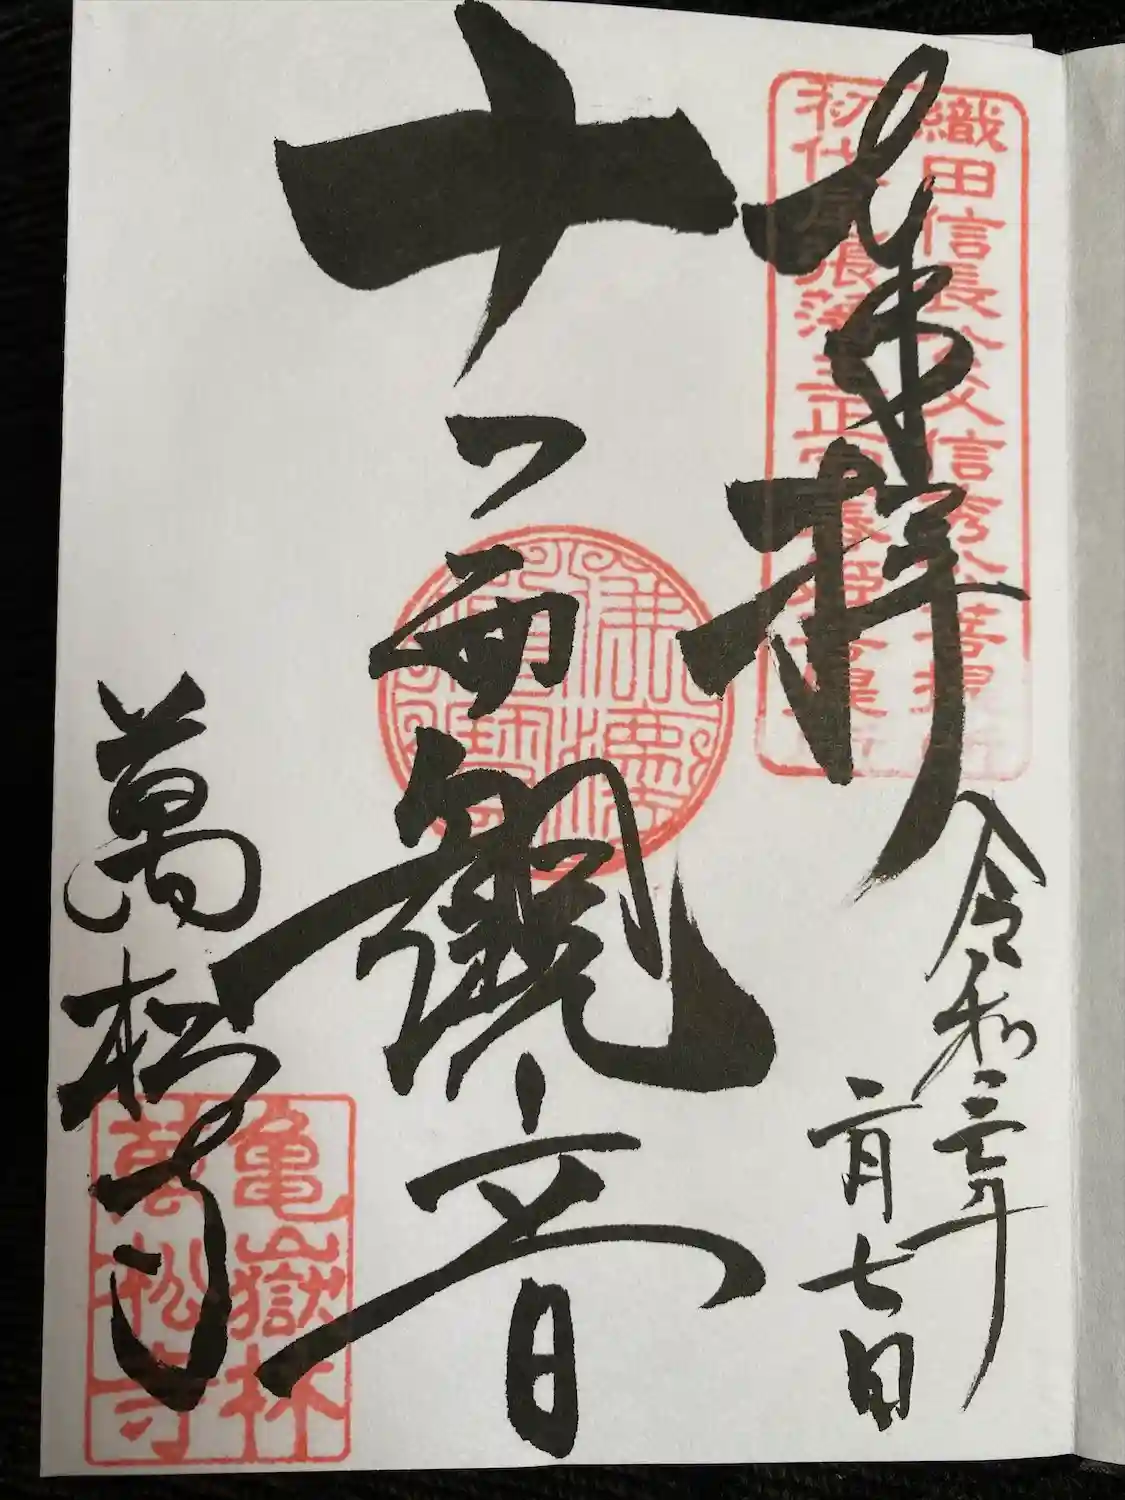 織田信長公父信秀公菩提所
初代尾張藩主正室春姫菩提所
奉拝
令和三年
二月七日
十一面観音
佛法僧寶
萬松寺
亀嶽林
萬松寺